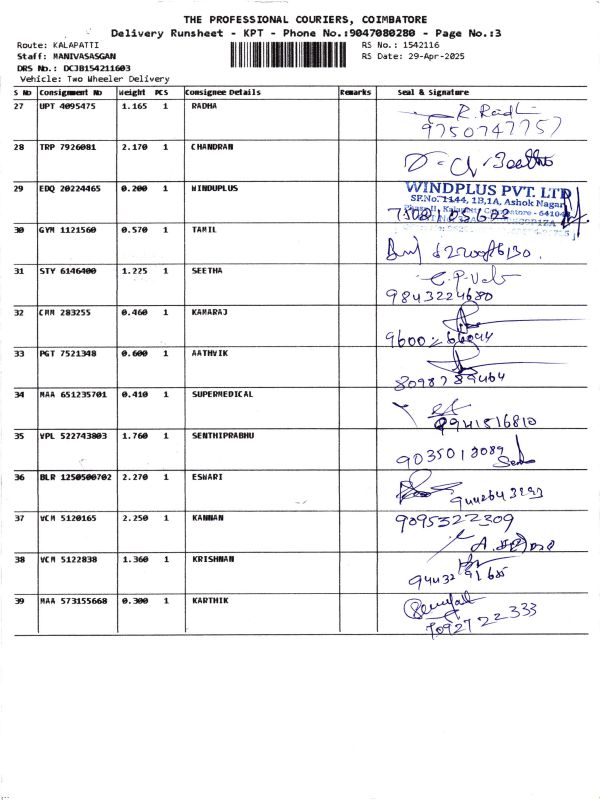 THE PROFESSIONAL COURIERS, COIMBATORE
Delivery Runsheet - KPT - Phone No.:9047080280 - Page No.:3
Route: KALAPATTI
RS No.: 1542116
Staff: MANIVASASGAN
RS Date: 29-Apr-2025
DRS No.: DCJB154211603
Vehicle: Two Wheeler Delivery
S No Consignment No Weight PCS Consignee Details Remarks Seal & Signature
27 UPT 4095475 1.165 1 RADHA R. Radh
9750747757
28 TRP 7926081 2.170 1 CHANDRAN
29 EDQ 20224465 0.200 1 WINDUPLUS WINDPLUS PVT. LTD
SF.No. 1144, 1B,1A, Ashok Nagar
30 GYM 1121560 0.570 1 TAMIL
31 STY 6146400 1.225 1 SEETHA
9843224680
32 CMM 283255 0.460 1 KAMARAJ
33 PGT 7521348 0.600 1 AATHVIK
34 MAA 651235701 0.410 1 SUPERMEDICAL
9941516810
35 VPL 522743803 1.760 1 SENTHIPRABHU
36 BLR 1250500702 2.270 1 ESWARI
37 VCM 5120165 2.250 1 KANNAN 9095322309
38 VCM 5122838 1.360 1 KRISHNAN
39 MAA 573155668 0.300 1 KARTHIK
7092722333